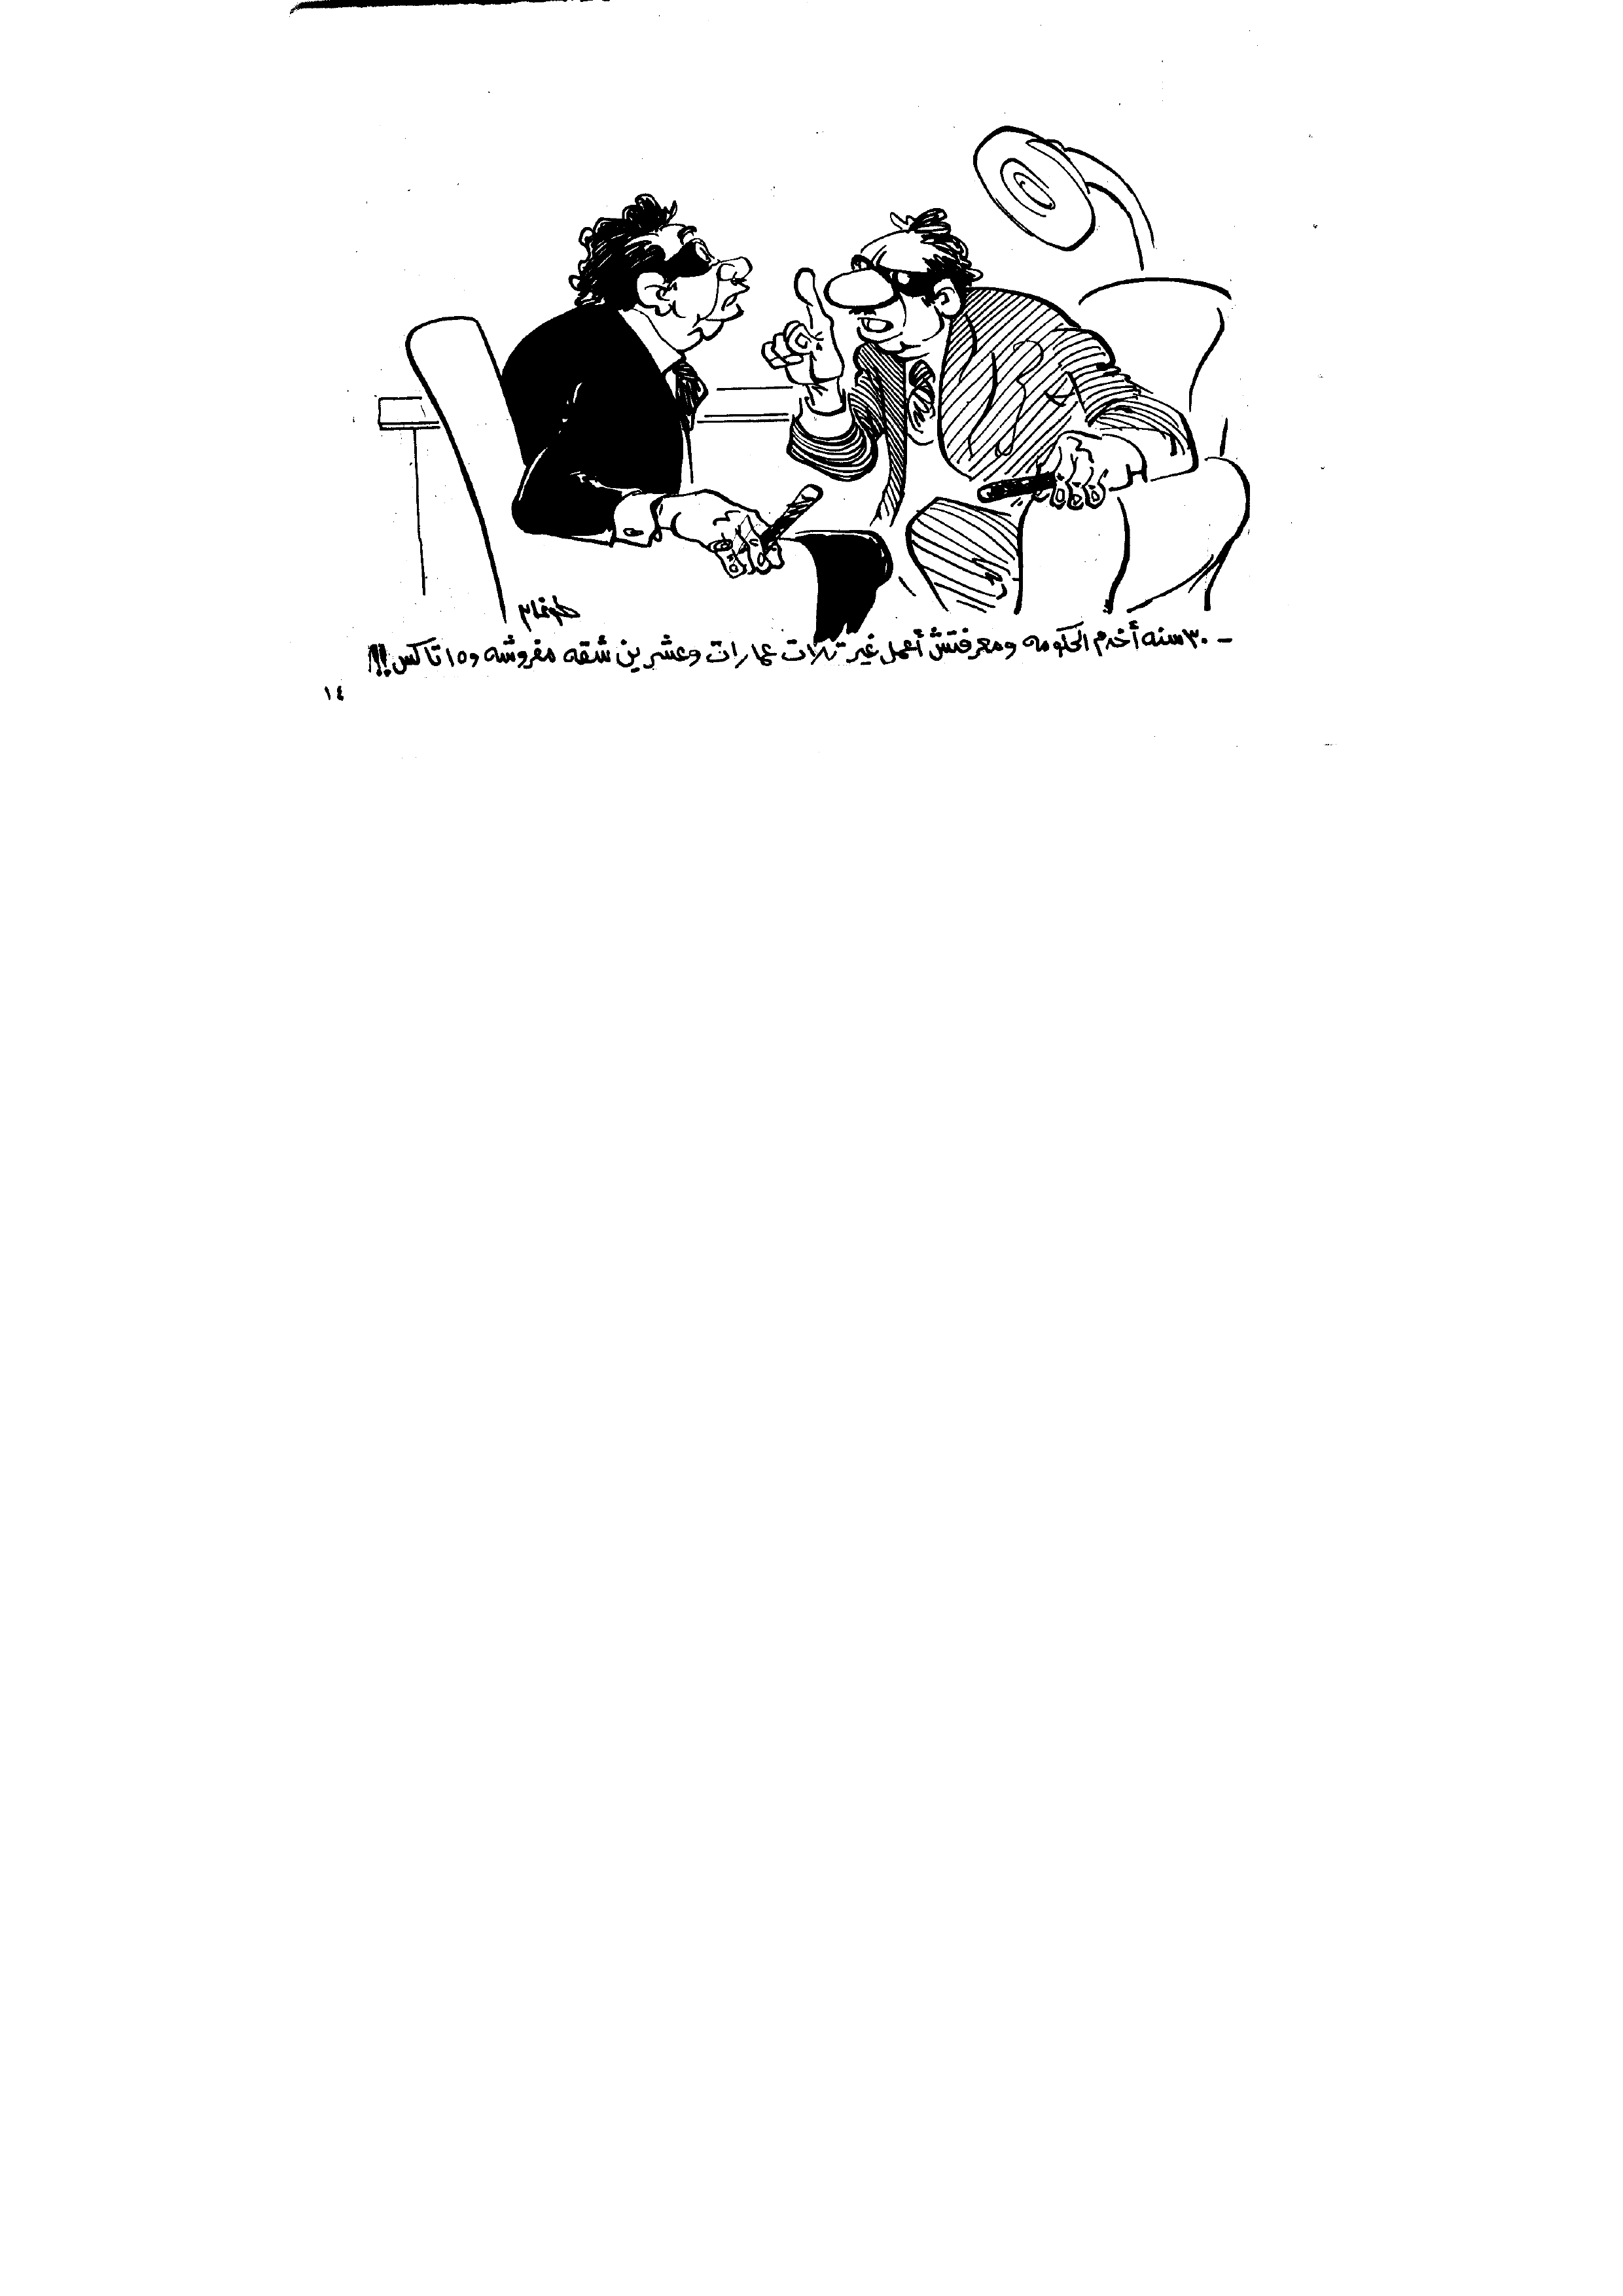 طوغان
- ٣٠ سنه أخدم الحكومه ومعرفتش أعمل غير تلات عمارات وعشرين شقه مفروشه و ١٥ تاكس !!!
١٤